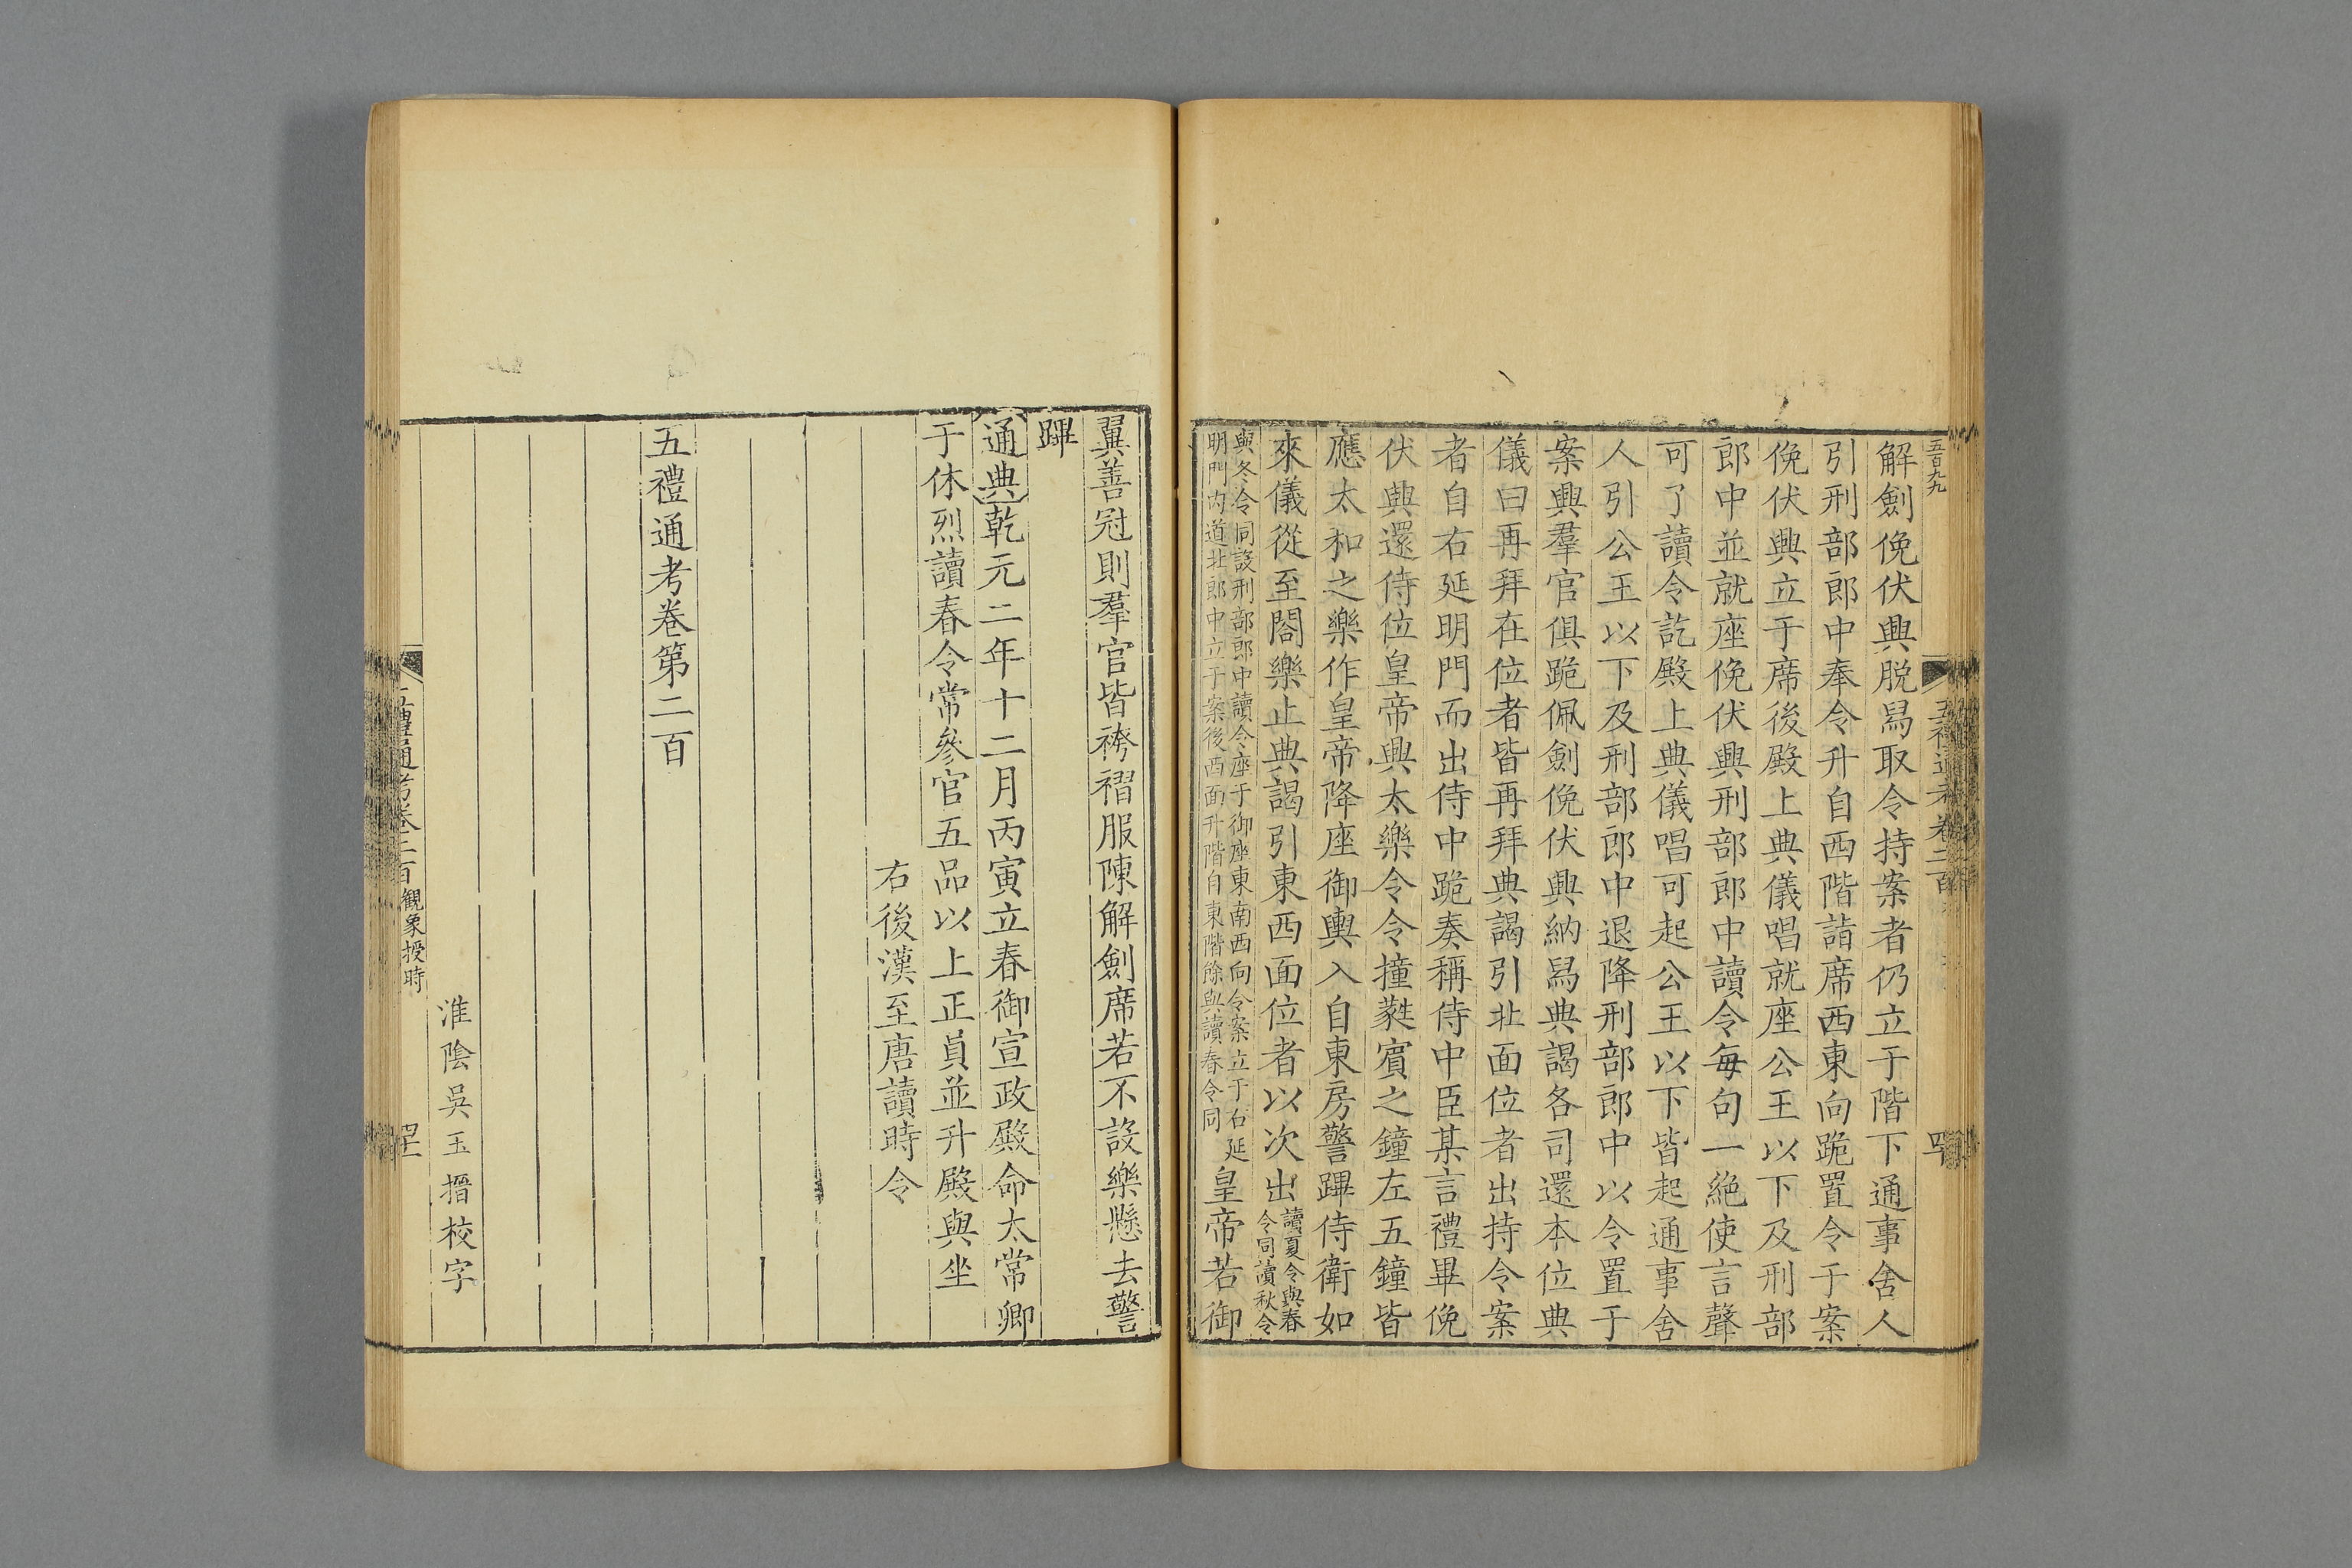 五百九九
五禮通考卷二百
解劍俛伏興脱舄取令持案者仍立于階下通事舍人
引刑部郎中奉令升自西階詣席西東向跪置令于案
俛伏興立于席後殿上典儀唱就座公王以下及刑部
郎中並就座俛伏興刑部郎中讀令每句一絶使言聲
可了讀令訖殿上典儀唱可起公王以下皆起通事舍
人引公王以下及刑部郎中退降刑部郎中以令置于
案興羣官俱跪佩劍俛伏興納舄典謁各司還本位典
儀曰再拜在位者皆再拜典謁引北面位者出持令案
者自右延明門而出侍中跪奏稱侍中臣某言禮畢俛
伏興還侍位皇帝興太樂令令撞蕤賓之鐘左五鐘皆
應太和之樂作皇帝降座御輿入自東房警蹕侍衛如
來儀從至閤樂止典謁引東西面位者以次出讀夏令與春令同讀秋令
與冬令同設刑部郎中讀令座于御座東南西向令案立于右延明門内道北郎中立于案後西面升階自東階餘與讀春令同皇帝若御
翼善冠則羣官皆袴褶服陳解劍席若不設樂懸去警
蹕
通典乾元二年十二月丙寅立春御宣政殿命太常卿
于休烈讀春令常參官五品以上正員並升殿與坐
右後漢至唐讀時令
五禮通考卷第二百
淮陰吳玉搢校字
五禮通考卷二百觀象授時